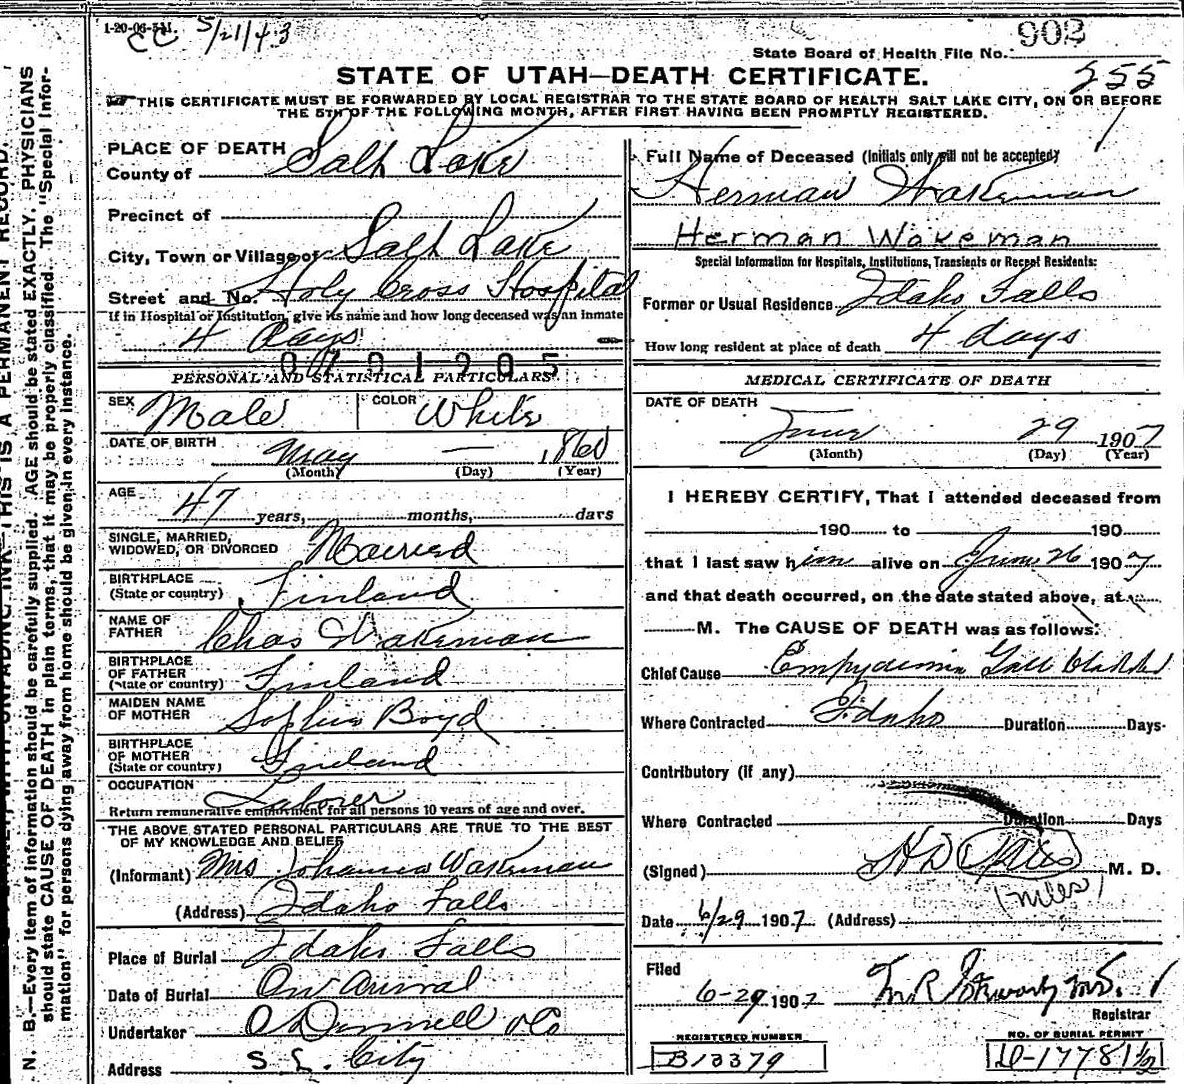 1-20-06-5M.
CC 5/21/43
902
State Board of Health File No.
255
STATE OF UTAH—DEATH CERTIFICATE.
THIS CERTIFICATE MUST BE FORWARDED BY LOCAL REGISTRAR TO THE STATE BOARD OF HEALTH SALT LAKE CITY, ON OR BEFORE
THE 5TH OF THE FOLLOWING MONTH, AFTER FIRST HAVING BEEN PROMPTLY REGISTERED.
PLACE OF DEATH
County of Salt Lake
Precinct of
City, Town or Village of Salt Lake
Street and No. Holy Cross Hospital
If in Hospital or Institution, give its name and how long deceased was an inmate
4 days
0701905
PERSONAL AND STATISTICAL PARTICULARS
SEX Male COLOR White
DATE OF BIRTH May — 1860
(Month) (Day) (Year)
AGE 47 years, months, days
SINGLE, MARRIED,
WIDOWED, OR DIVORCED Married
BIRTHPLACE
(State or country) Finland
NAME OF
FATHER Chas Wakeman
BIRTHPLACE
OF FATHER
(State or country) Finland
MAIDEN NAME
OF MOTHER Sophia Boyd
BIRTHPLACE
OF MOTHER
(State or country) Finland
OCCUPATION
Laborer
Return remunerative employment for all persons 10 years of age and over.
THE ABOVE STATED PERSONAL PARTICULARS ARE TRUE TO THE BEST
OF MY KNOWLEDGE AND BELIEF
(Informant) Mrs Johanna Wakeman
(Address) Idaho Falls
Place of Burial Idaho Falls
Date of Burial On arrival
Undertaker O'Donnell & Co
Address S. L. City
Full Name of Deceased (Initials only will not be accepted)
Herman Wakeman
Herman Wakeman
Special Information for Hospitals, Institutions, Transients or Recent Residents:
Former or Usual Residence Idaho Falls
How long resident at place of death 4 days
MEDICAL CERTIFICATE OF DEATH
DATE OF DEATH
June 29 1907
(Month) (Day) (Year)
I HEREBY CERTIFY, That I attended deceased from
190 to 190
that I last saw him alive on June 26 1907
and that death occurred, on the date stated above, at
M. The CAUSE OF DEATH was as follows:
Chief Cause Gall bladder
Where Contracted Idaho Duration Days
Contributory (if any)
Where Contracted Duration Days
(Signed) H D Niles M. D.
(niles)
Date 6/29 1907 (Address)
Filed
6-29 1907
Registrar
REGISTERED NUMBER
B13379
NO. OF BURIAL PERMIT
D-17781½
N. B.—Every item of information should be carefully supplied. AGE should be stated EXACTLY. PHYSICIANS
should state CAUSE OF DEATH in plain terms, that it may be properly classified. The "Special Infor-
mation" for persons dying away from home should be given in every instance.